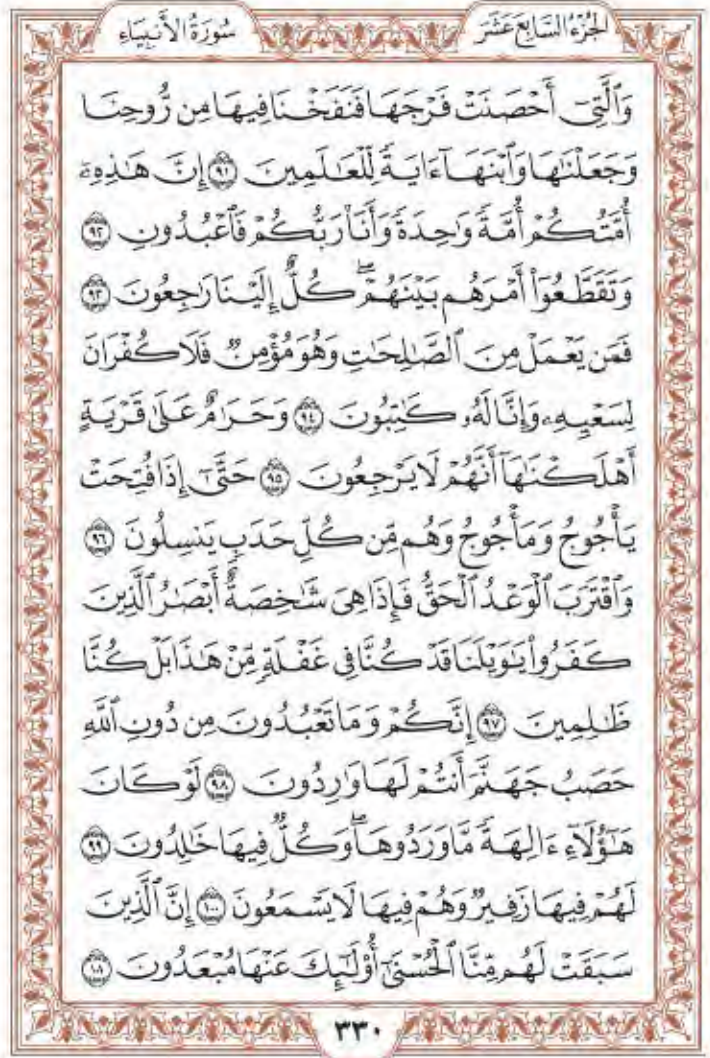 الجُزْءُ السَّابِعَ عَشَرَ سُورَةُ الأَنبِيَاءِ
وَٱلَّتِيٓ أَحْصَنَتْ فَرْجَهَا فَنَفَخْنَا فِيهَا مِن رُّوحِنَا
وَجَعَلْنَٰهَا وَٱبْنَهَآ ءَايَةً لِّلْعَٰلَمِينَ ٩١ إِنَّ هَٰذِهِۦٓ
أُمَّتُكُمْ أُمَّةً وَٰحِدَةً وَأَنَا۠ رَبُّكُمْ فَٱعْبُدُونِ ٩٢
وَتَقَطَّعُوٓا۟ أَمْرَهُم بَيْنَهُمْۖ كُلٌّ إِلَيْنَا رَٰجِعُونَ ٩٣
فَمَن يَعْمَلْ مِنَ ٱلصَّٰلِحَٰتِ وَهُوَ مُؤْمِنٌ فَلَا كُفْرَانَ
لِسَعْيِهِۦ وَإِنَّا لَهُۥ كَٰتِبُونَ ٩٤ وَحَرَٰمٌ عَلَىٰ قَرْيَةٍ
أَهْلَكْنَٰهَآ أَنَّهُمْ لَا يَرْجِعُونَ ٩٥ حَتَّىٰٓ إِذَا فُتِحَتْ
يَأْجُوجُ وَمَأْجُوجُ وَهُم مِّن كُلِّ حَدَبٍ يَنسِلُونَ ٩٦
وَٱقْتَرَبَ ٱلْوَعْدُ ٱلْحَقُّ فَإِذَا هِيَ شَٰخِصَةٌ أَبْصَٰرُ ٱلَّذِينَ
كَفَرُوا۟ يَٰوَيْلَنَا قَدْ كُنَّا فِي غَفْلَةٍ مِّنْ هَٰذَا بَلْ كُنَّا
ظَٰلِمِينَ ٩٧ إِنَّكُمْ وَمَا تَعْبُدُونَ مِن دُونِ ٱللَّهِ
حَصَبُ جَهَنَّمَ أَنتُمْ لَهَا وَٰرِدُونَ ٩٨ لَوْ كَانَ
هَٰٓؤُلَآءِ ءَالِهَةً مَّا وَرَدُوهَاۖ وَكُلٌّ فِيهَا خَٰلِدُونَ ٩٩
لَهُمْ فِيهَا زَفِيرٌ وَهُمْ فِيهَا لَا يَسْمَعُونَ ١٠٠ إِنَّ ٱلَّذِينَ
سَبَقَتْ لَهُم مِّنَّا ٱلْحُسْنَىٰٓ أُو۟لَٰٓئِكَ عَنْهَا مُبْعَدُونَ ١٠١
٣٣٠